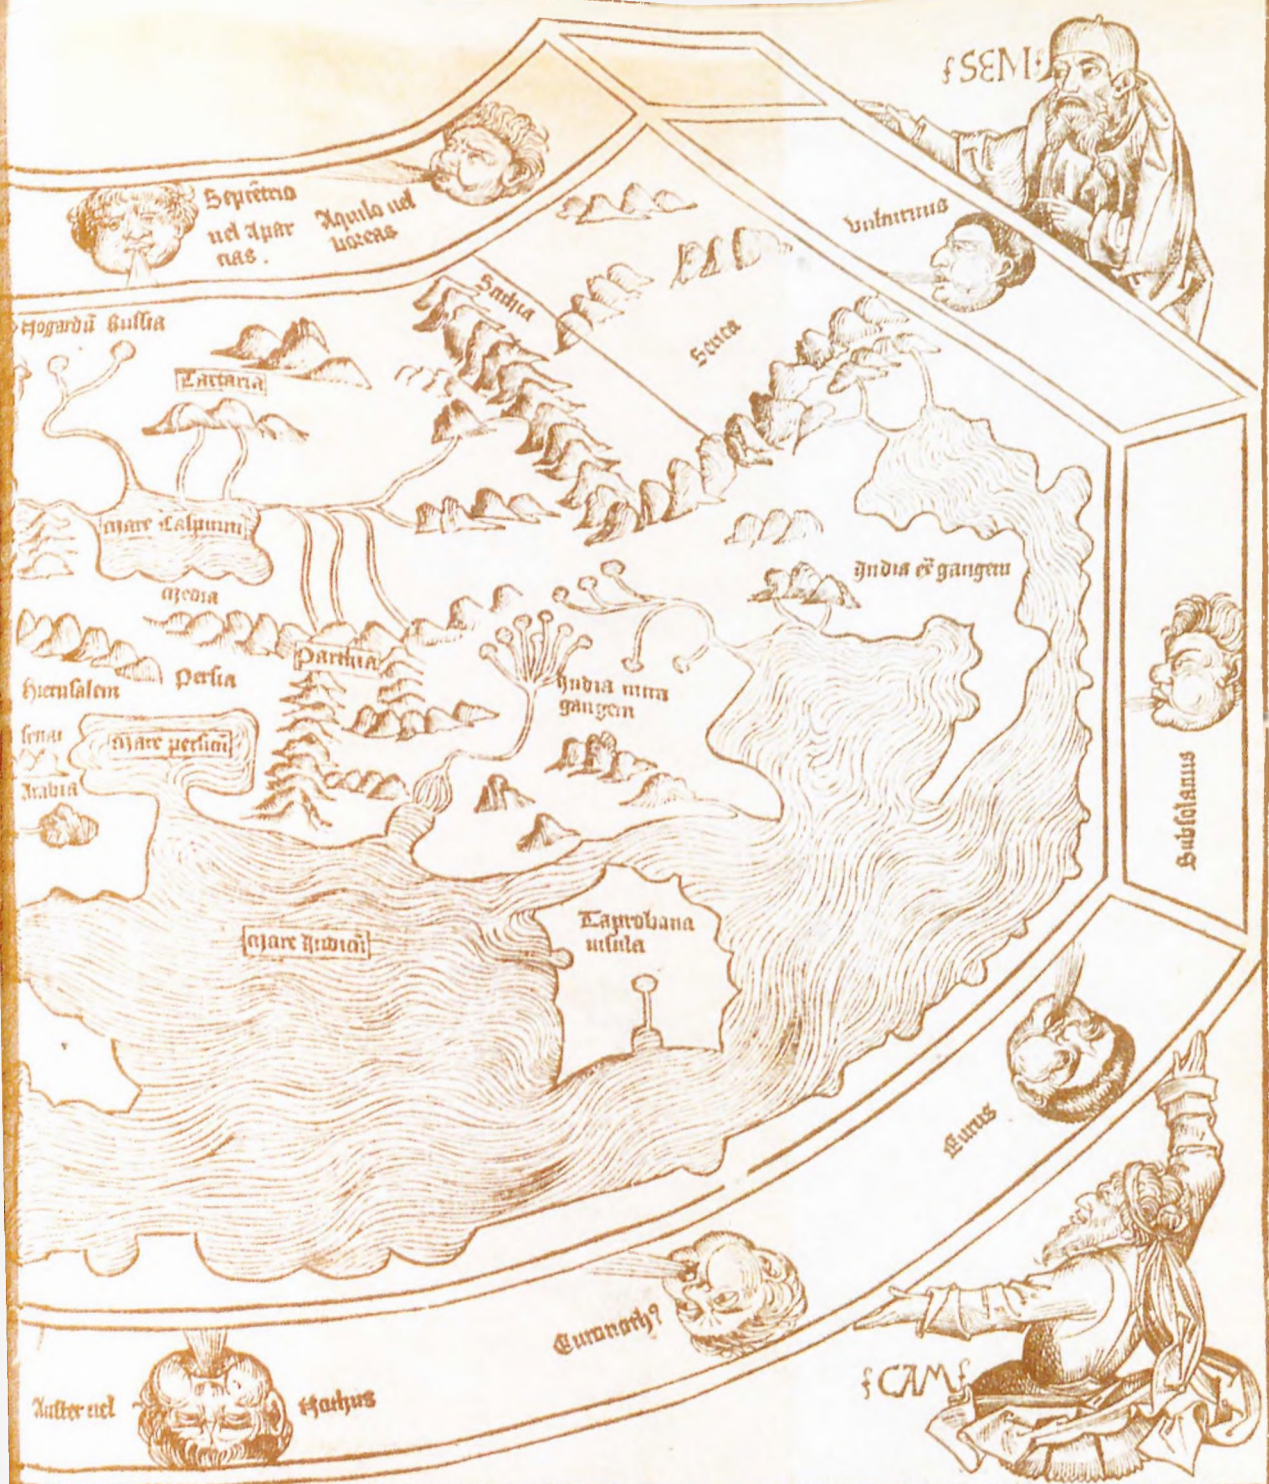 SEM
Septētrio
uel Apar
cias.
Aquilo uel
boreas
Vulturnus
Nogardū Russia
Sithia
Serica
Tartaria
Mare Caspium
Media
India ex̄ gangem
Parthia
Hierusalem
Persia
India intra
gangem
Mare persicū
Arabia
Subsolanus
Mare Indicū
Taprobana
insula
Eurus
Euronothꝰ
CAM
Auster uel
Nothus